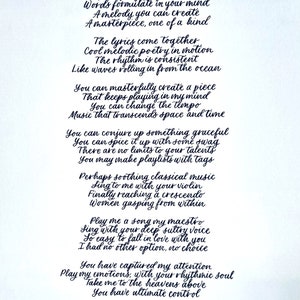 Words formulate in your mind
A melody you can create
A masterpiece, one of a kind
The lyrics come together
Cool melodic poetry in motion
The rhythm is consistent
Like waves rolling in from the ocean
You can masterfully create a piece
That keeps playing in my mind
You can change the tempo
Music that transcends space and time
You can conjure up something graceful
You can spice it up with some swag
There are no limits to your talents
You may make playlists with tags
Perhaps soothing classical music
Sing to me with your violin
Finally reaching a crescendo
Women gasping from within
Play me a song my maestro
Sing with your deep sultry voice
So easy to fall in love with you
I had no other option, no choice
You have captured my attention
Play my emotions, with your rhythmic soul
Take me to the heavens above
You have ultimate control